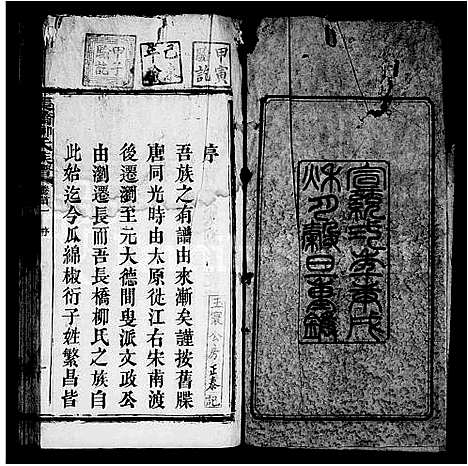 宣統
秌月穀旦重鐫
甲寅
歐記
己未
年金
甲子
歐記
序
吾族之有譜由來漸矣謹按舊牒
唐同光時由太原徙江右宋南渡
後遷瀏至元大德間叟派文政公
由瀏遷長而吾長橋柳氏之族自
此始迄今瓜綿椒衍子姓繁昌皆
公房正泰記